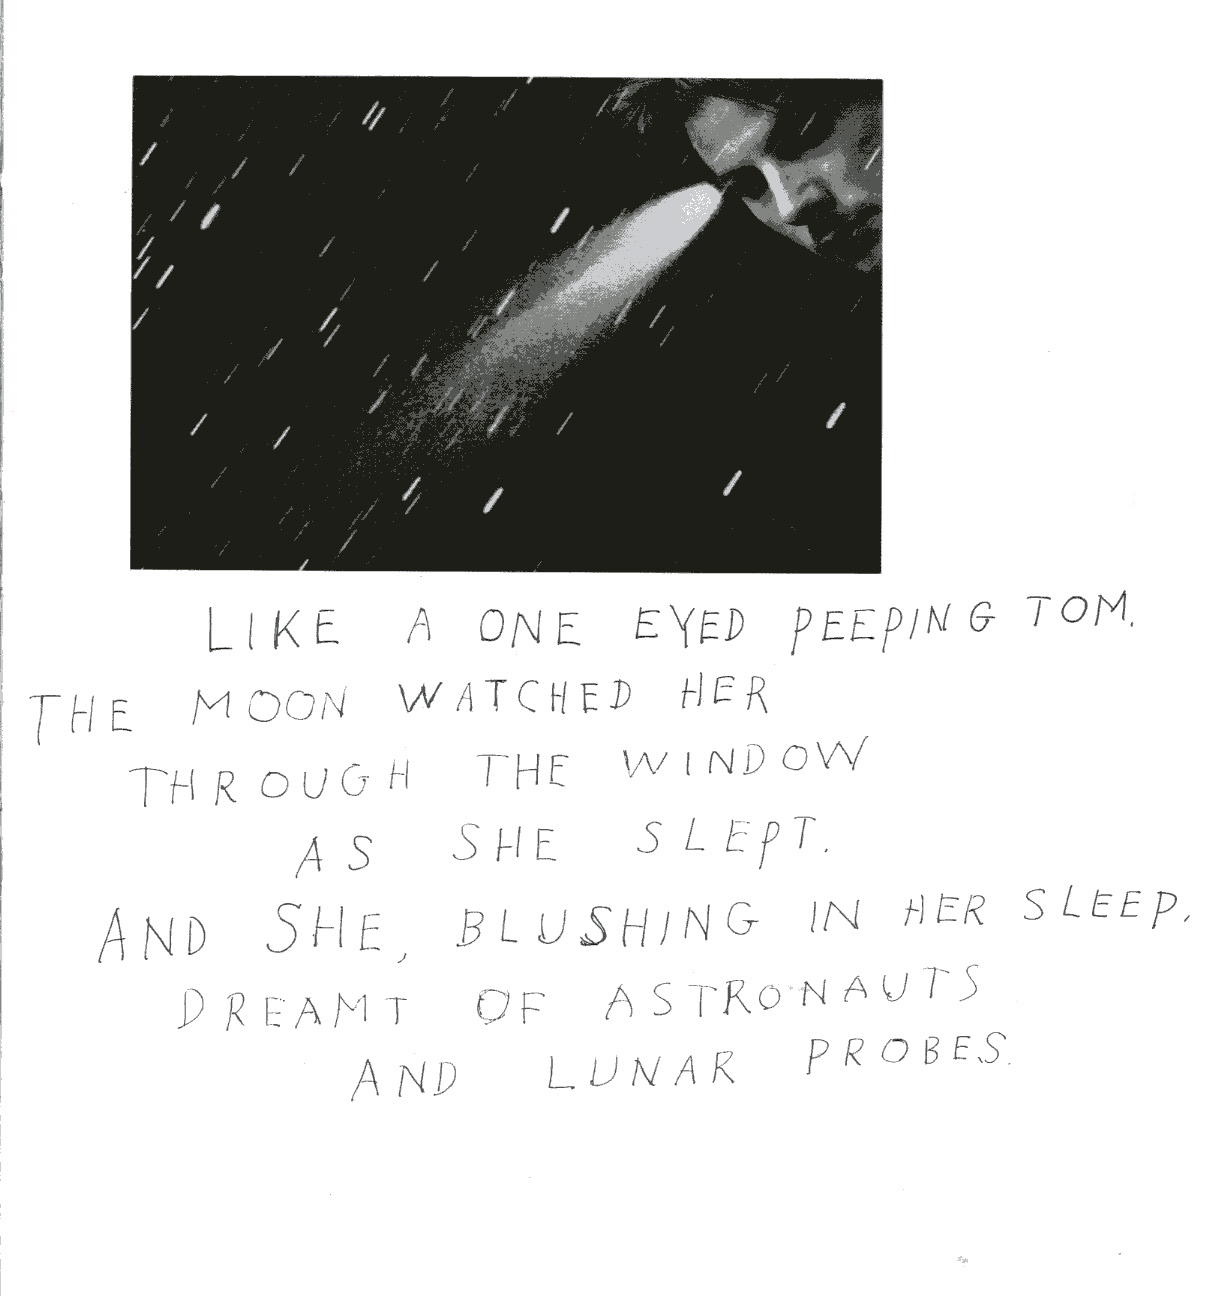 LIKE A ONE EYED PEEPING TOM.
THE MOON WATCHED HER
THROUGH THE WINDOW
AS SHE SLEPT.
AND SHE, BLUSHING IN HER SLEEP.
DREAMT OF ASTRONAUTS
AND LUNAR PROBES.